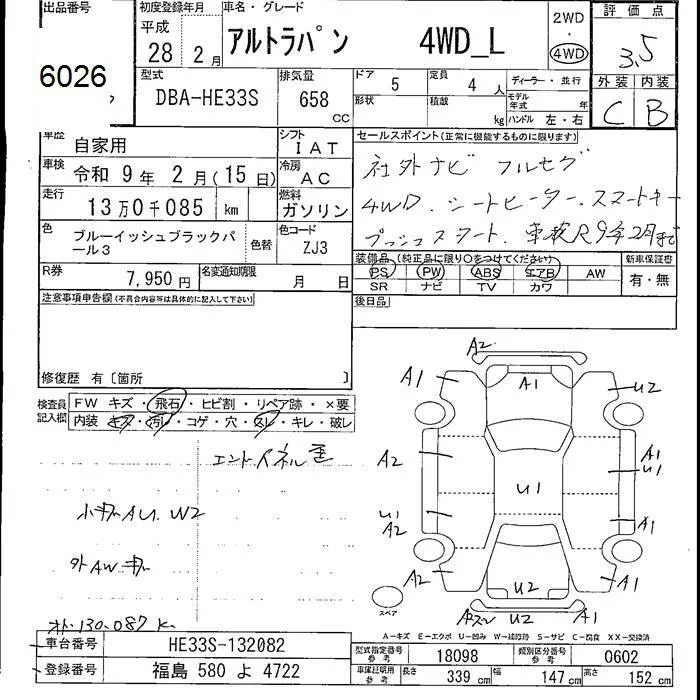 出品番号
6026
初度登録年月
平成
28年 2月
車名・グレード
アルトラパン 4WD_L
2WD
・
4WD
評価点
3.5
外装 内装
C B
型式
DBA-HE33S
排気量
658
CC
ドア 5
定員 4人
形状
積載
kg
ディーラー・並行
モデル年式 年
ハンドル 左・右
車歴
自家用
シフト
IAT
車検
令和 9年 2月(15日)
冷房
AC
走行
13万0千085 km
燃料
ガソリン
色
ブルーイッシュブラックパール3
色替
色コード
ZJ3
R券
7,950円
名変通知期限
月 日
セールスポイント(正常に機能するものに限ります)
社外ナビ フルセグ
4WD.シートヒーター.スマートキー
プッシュスタート.車検R9年2月まで
装備品(純正品に限り○をつけてください)
新車保証書
PS PW ABS エアB AW
有・無
SR ナビ TV カワ
後日品
注意事項申告欄(不具合内容等は具体的に記入して下さい)
修復歴 有〔箇所 〕
検査員記入欄
FW キズ・飛石・ヒビ割・リペア跡・×要
内装・キズ・汚レ・コゲ・穴・スレ・キレ・破レ
小キズAU.W2
外AWキズ
130.087K
A2
A1 A1 U2
A2 A1
U1
U1
U1
A2 A1
A2 U2 A1
A1
スペア
A-キズ E-エクボ U-凹み W-補修跡 S-サビ C-腐食 XX-交換済
車台番号
HE33S-132082
登録番号
福島 580 よ 4722
型式指定番号
参考
18098
類別区分番号
参考
0602
車庫証明用
参考
長さ 339 cm
幅 147 cm
高さ 152 cm